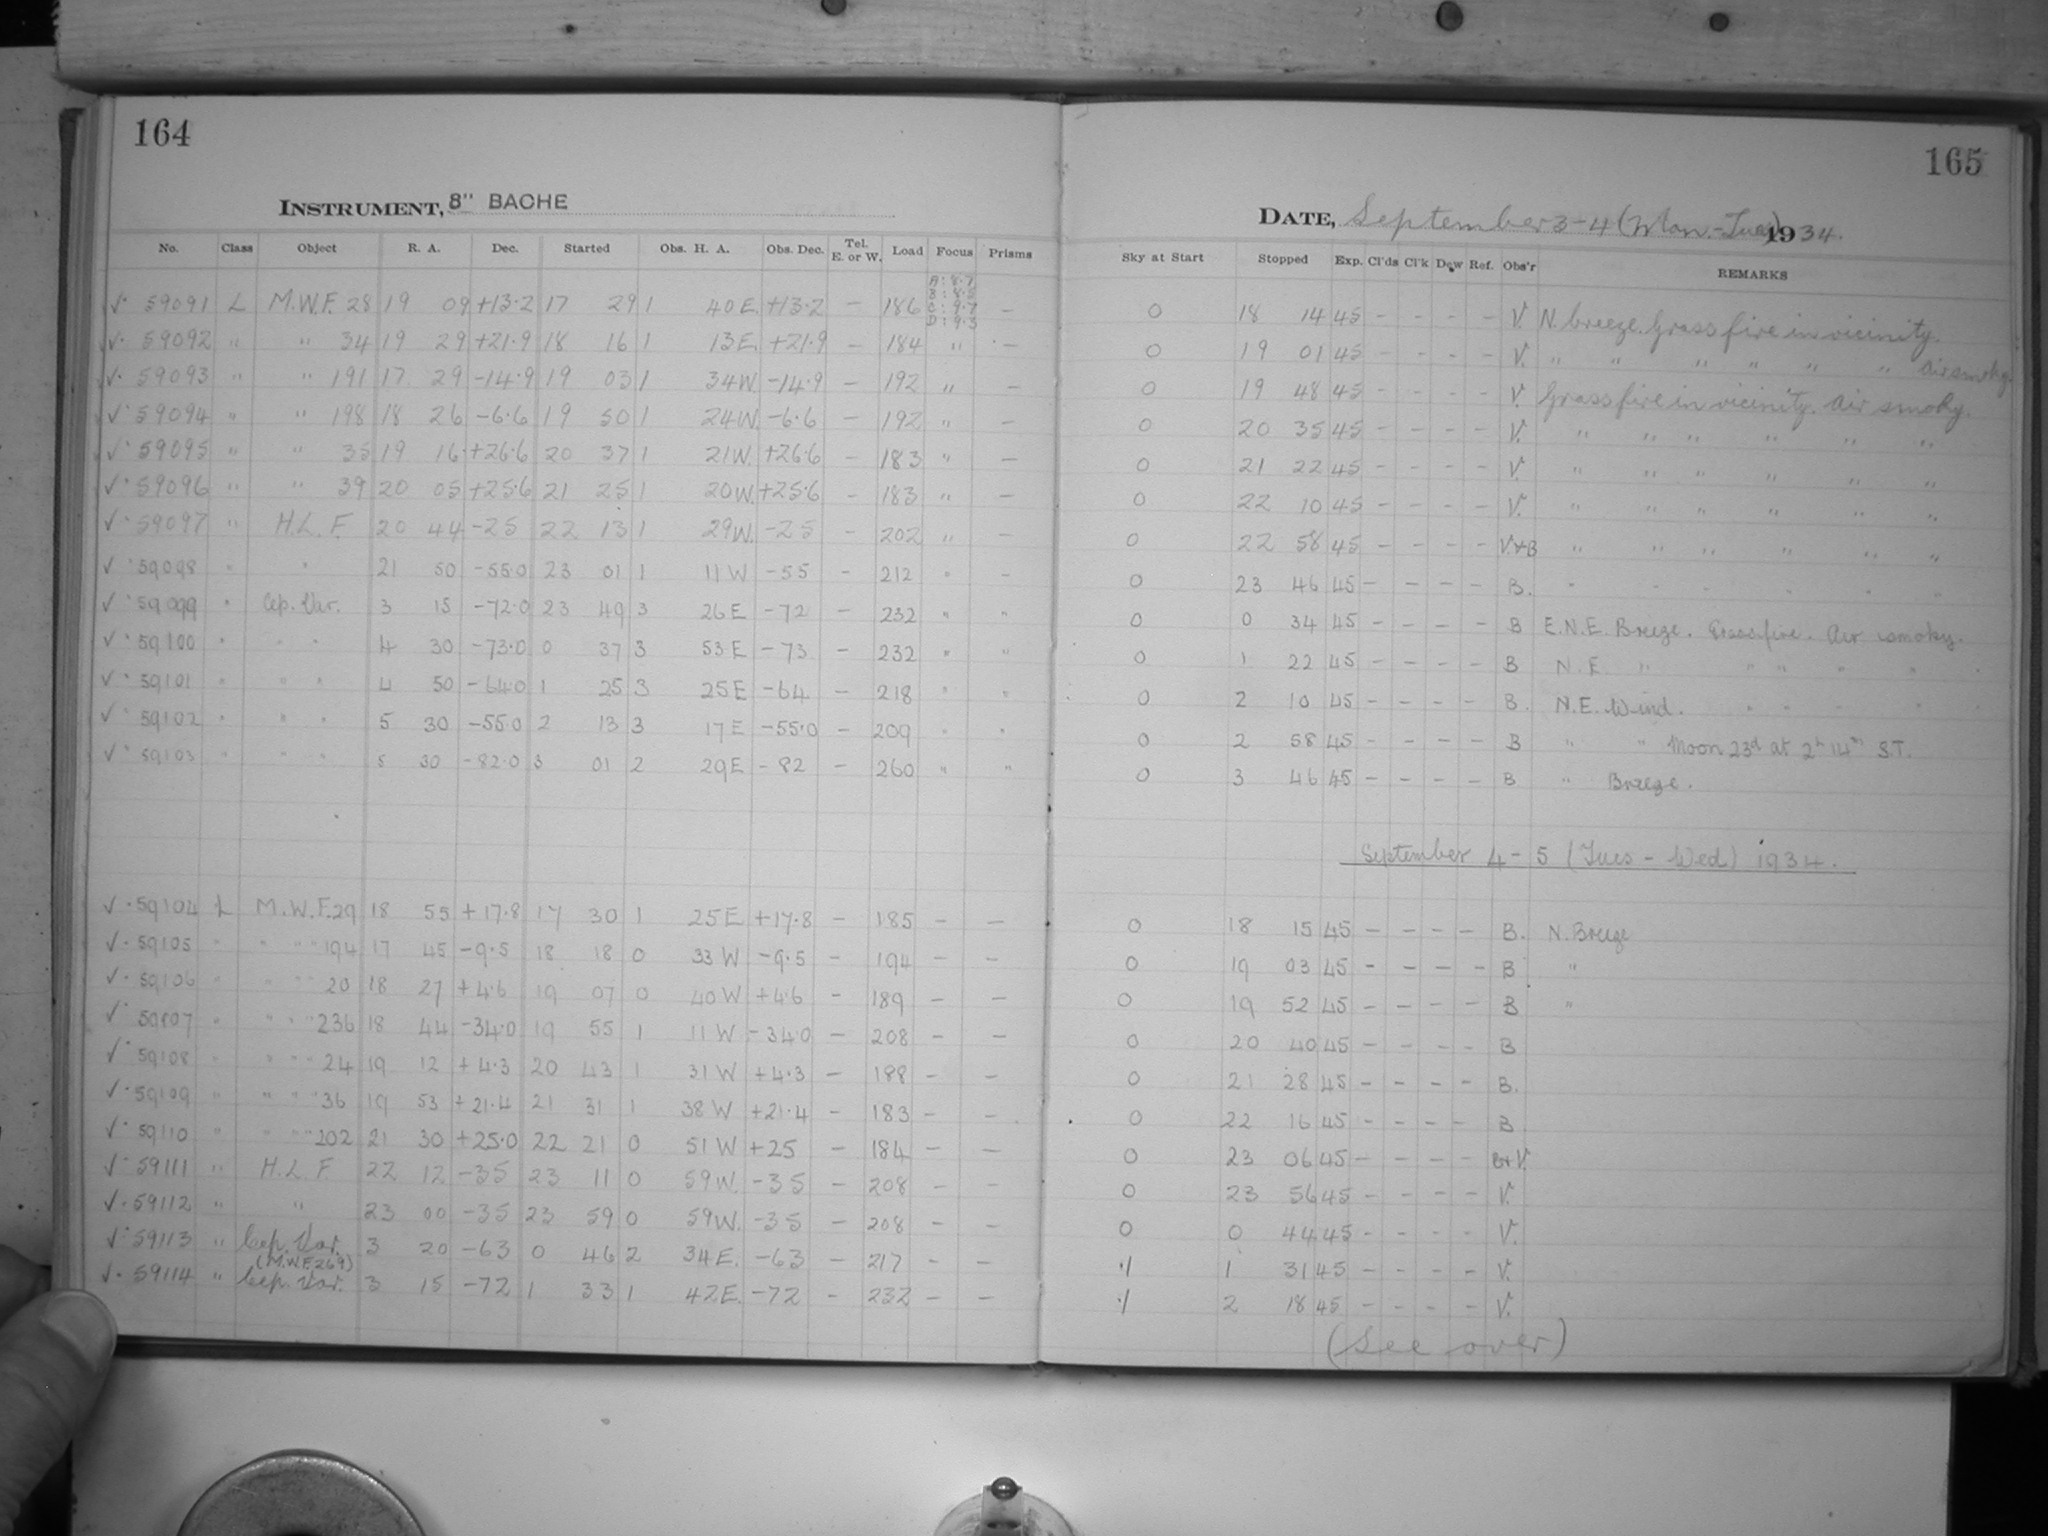 164
INSTRUMENT, 8" BACHE
No. Class Object R. A. Dec. Started Obs. H. A. Obs. Dec. Tel. E. or W. Load Focus Prisms
√· 59091 L M.W.F. 28 19 09 +13·2 17 29 1 40 E. +13·2 – 186 A: 8·7 B: 8·5 C: 9·7 D: 9·3 –
√· 59092 " " 34 19 29 +21.9 18 16 1 13 E. +21.9 – 184 " –
√· 59093 " " 191 17 29 –14.9 19 03 1 34 W. –14.9 – 192 " –
√· 59094 " " 198 18 26 –6·6 19 50 1 24 W. –6·6 – 192 " –
√· 59095 " " 35 19 16 +26.6 20 37 1 21 W. +26.6 – 183 " –
√· 59096 " " 39 20 05 +25·6 21 25 1 20 W. +25·6 – 183 " –
√· 59097 " H.L.F. 20 44 –25 22 13 1 29 W. –25 – 202 " –
√· 59098 " " 21 50 –55.0 23 01 1 11 W –55 – 212 " –
√· 59099 " Cep. Var. 3 15 –72.0 23 49 3 26 E –72 – 232 " "
√· 59100 " " " 4 30 –73.0 0 37 3 53 E –73 – 232 " "
√· 59101 " " " 4 50 –64.0 1 25 3 25 E –64 – 218 " "
√· 59102 " " " 5 30 –55.0 2 13 3 17 E –55.0 – 209 " "
√· 59103 " " " 5 30 –82.0 3 01 2 29 E –82 – 260 " "
√· 59104 L M.W.F. 29 18 55 +17.8 17 30 1 25 E +17.8 – 185 – –
√· 59105 " " " " 194 17 45 –9·5 18 18 0 33 W –9·5 – 194 – –
√· 59106 " " " " 20 18 27 +4.6 19 07 0 40 W +4.6 – 189 – –
√· 59107 " " " " 236 18 44 –34.0 19 55 1 11 W –34.0 – 208 – –
√· 59108 " " " " 24 19 12 +4.3 20 43 1 31 W +4.3 – 188 – –
√· 59109 " " " " 36 19 53 +21.4 21 31 1 38 W +21.4 – 183 – –
√· 59110 " " " " 202 21 30 +25.0 22 21 0 51 W +25 – 184 – –
√· 59111 " H.L.F. 22 12 –35 23 11 0 59 W. –35 – 208 – –
√· 59112 " " 23 00 –35 23 59 0 59 W. –35 – 208 – –
√· 59113 " Cep. Var. 3 20 –63 0 46 2 34 E. –63 – 217 – –
(M.W.F. 269)
√· 59114 " Cep. Var. 3 15 –72 1 33 1 42 E. –72 – 232 – –
165
DATE, September 3–4 (Mon.–Tues) 1934.
Sky at Start Stopped Exp. Cl'ds Cl'k Dew Ref. Obs'r REMARKS
0 18 14 45 – – – – V. N. breeze. Grass fire in vicinity.
0 19 01 45 – – – – V. " " " " " " Air smoky
0 19 48 45 – – – – V. Grass fire in vicinity. Air smoky.
0 20 35 45 – – – – V. " " " " " "
0 21 22 45 – – – – V. " " " " " "
0 22 10 45 – – – – V. " " " " " "
0 22 58 45 – – – – V.+B " " " " " "
0 23 46 45 – – – – B. " " " " " "
0 0 34 45 – – – – B E.N.E. Breeze. Grassfire. Air smoky.
0 1 22 45 – – – – B N.E. " " " " "
0 2 10 45 – – – – B. N.E. Wind. " " " "
0 2 58 45 – – – – B " " Moon 23d at 2h 14m S.T.
0 3 46 45 – – – – B " Breeze.
September 4–5 (Tues – Wed) 1934.
0 18 15 45 – – – – B. N. Breeze
0 19 03 45 – – – – B "
0 19 52 45 – – – – B "
0 20 40 45 – – – – B
0 21 28 45 – – – – B.
0 22 16 45 – – – – B
0 23 06 45 – – – – B+V.
0 23 56 45 – – – – V.
0 0 44 45 – – – – V.
·1 1 31 45 – – – – V.
·1 2 18 45 – – – – V.
(See over)